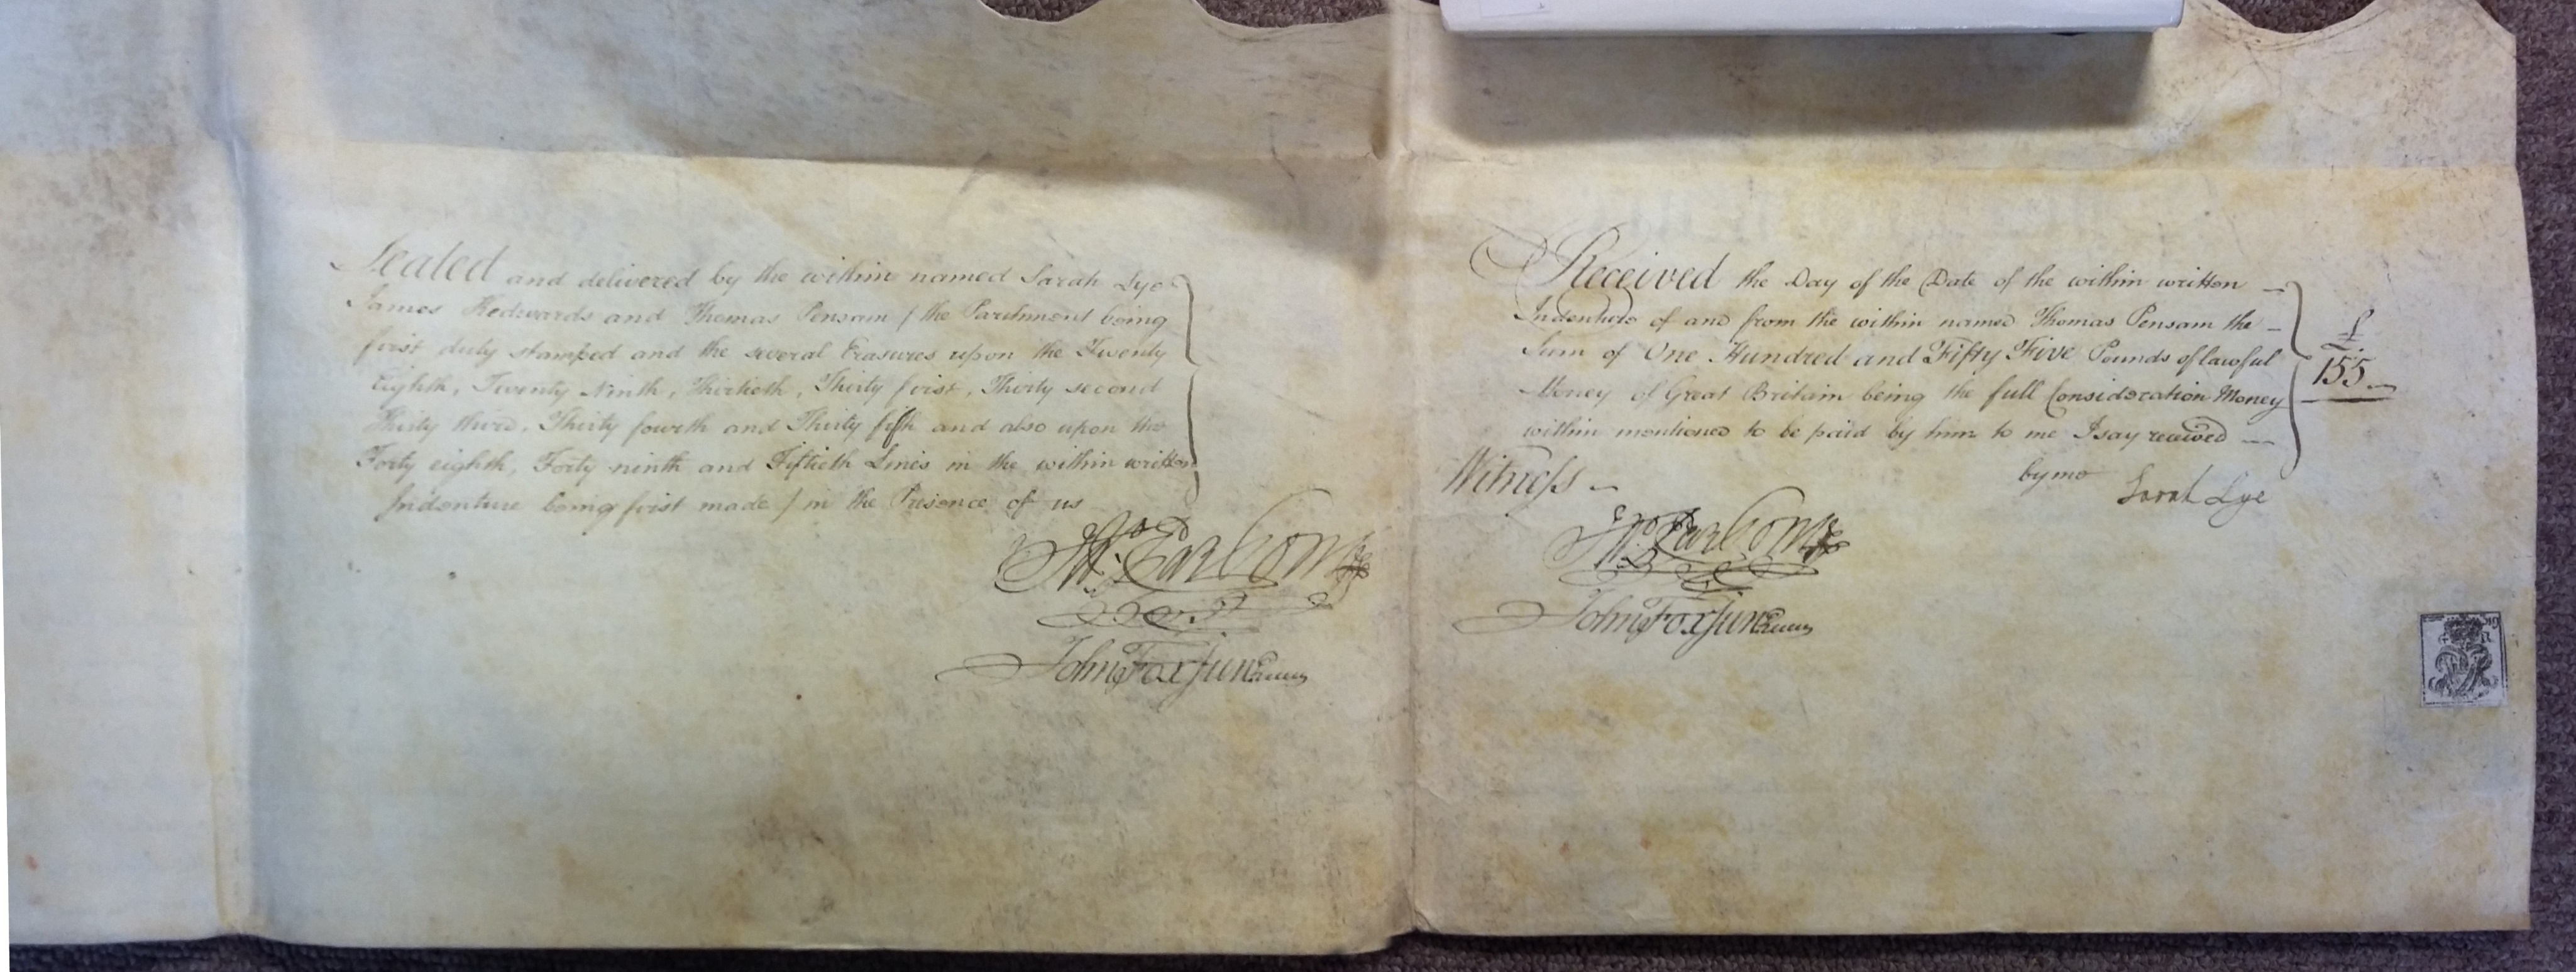 Sealed and delivered by the within named Sarah Lye
James Hedwards and Thomas Pensam / the Parchment being
first duly stamped and the several Erasures upon the Twenty
Eighth, Twenty Ninth, Thirtieth, Thirty first, Thirty second
Thirty third, Thirty fourth and Thirty fifth and also upon the
Forty eighth, Forty ninth and Fiftieth Lines in the within written
Indenture being first made / in the Presence of us
John Fox Junr
Received the Day of the Date of the within written
Indenture of and from the within named Thomas Pensam the
Sum of One Hundred and Fifty Five Pounds of lawful
Money of Great Britain being the full Consideration Money
within mentioned to be paid by him to me I say received
£
155
by me Sarah Lye
Witness
John Fox Junr